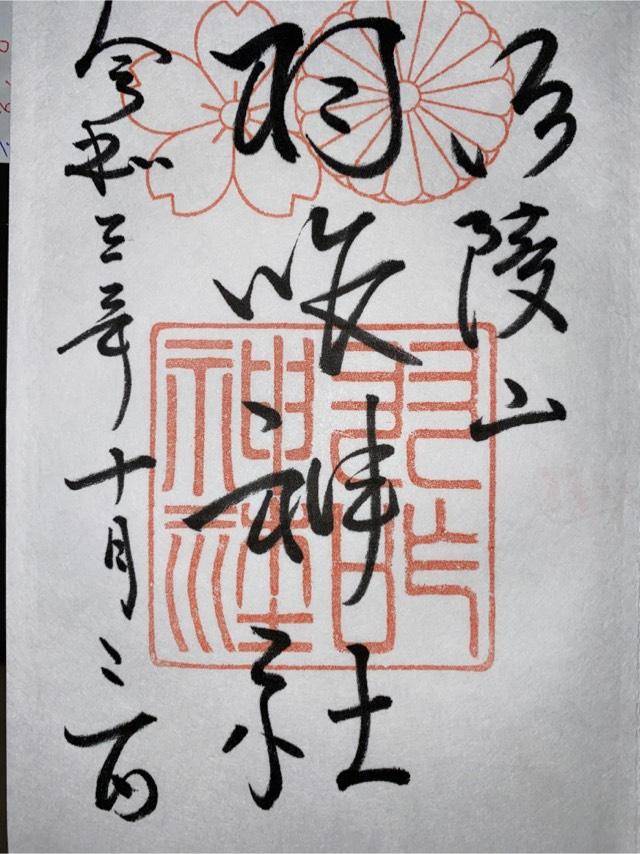 陵山
羽咋神社
令和三年十月三日
羽咋
神社